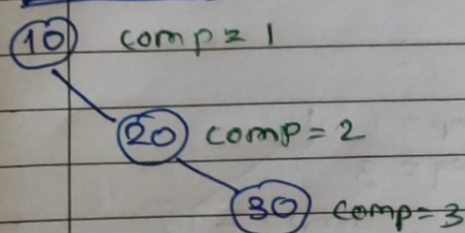 10 comp = 1
20 comp = 2
30 comp = 3